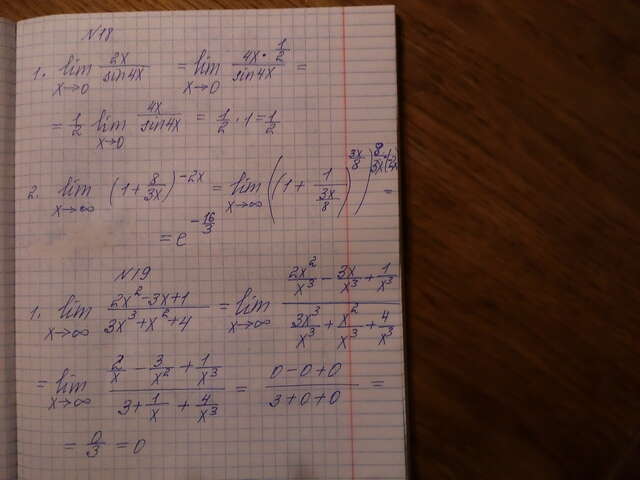 N18
1. lim x→0 2x/sin4x = lim x→0 (4x·1/2)/sin4x =
= 1/2 lim x→0 4x/sin4x = 1/2 · 1 = 1/2
2. lim x→∞ (1+8/3x)^-2x = lim x→∞ ((1+1/(3x/8))^3x/8)^8/3x(-2x) =
= e^-16/3
N19
1. lim x→∞ (2x²-3x+1)/(3x³+x²+4) = lim x→∞ (2x²/x³ - 3x/x³ + 1/x³)/(3x³/x³ + x²/x³ + 4/x³)
= lim x→∞ (2/x - 3/x² + 1/x³)/(3 + 1/x + 4/x³) = (0-0+0)/(3+0+0) =
= 0/3 = 0